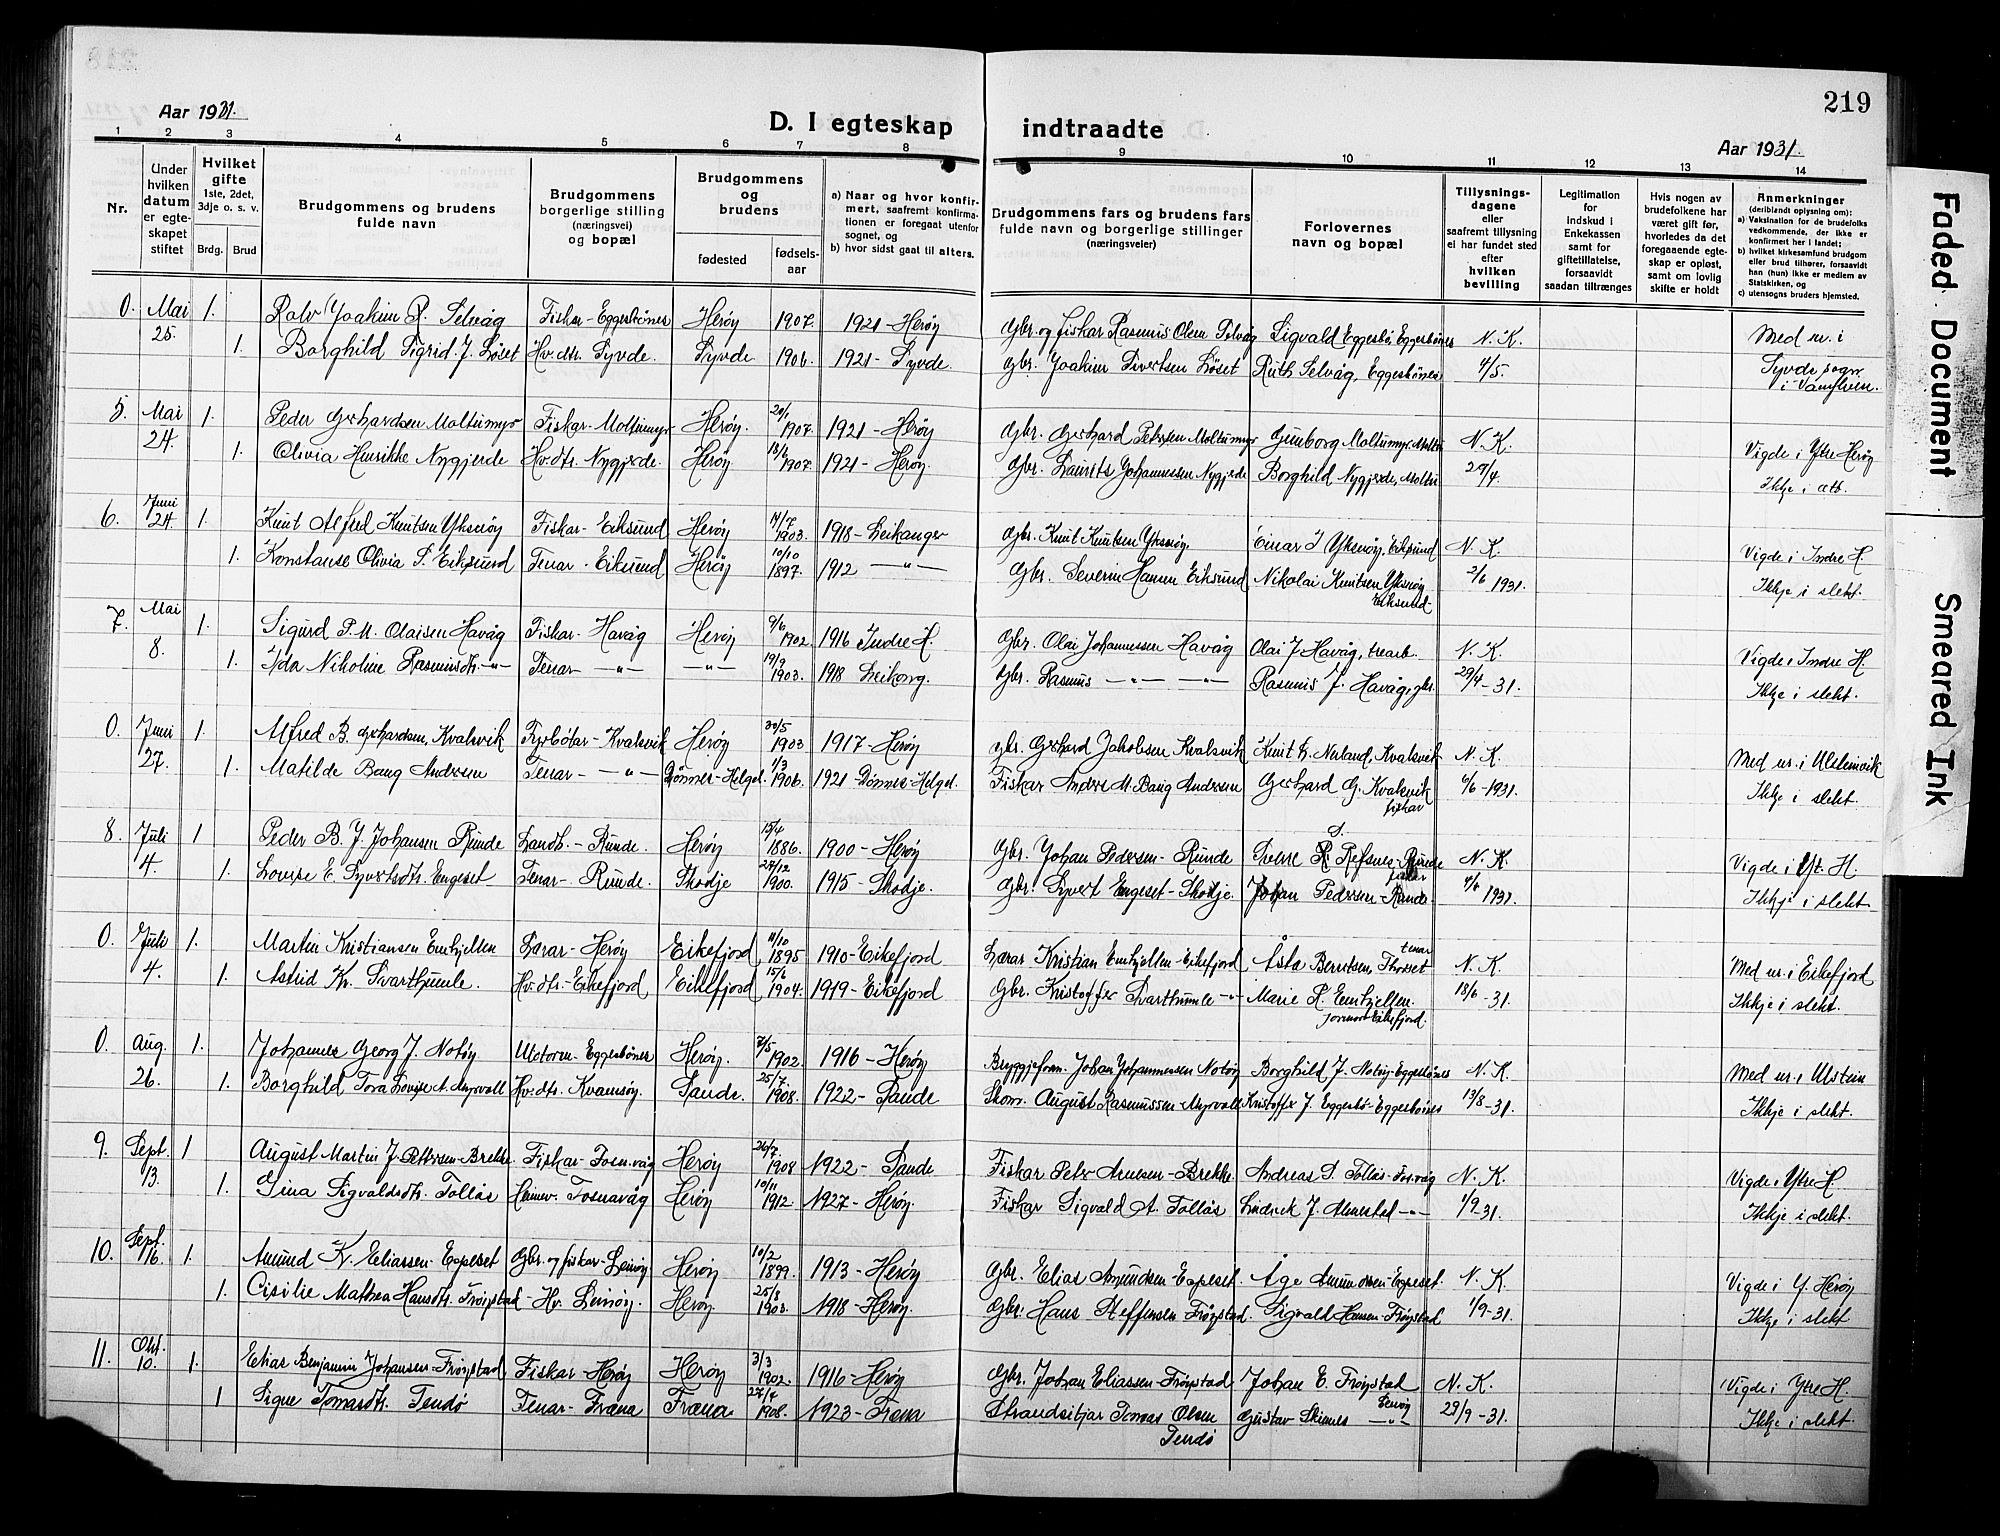 219
Aar 1931.
D. I egteskap indtraadte
Aar 1931.
1 2 3 4 5 6 7 8 9 10 11 12 13 14
Nr.
Under hvilken datum er egteskapet stiftet
Hvilket gifte 1ste, 2det, 3dje o. s. v.
Brdg. Brud
Brudgommens og brudens fulde navn
Brudgommens borgerlige stilling (næringsvei) og bopæl
Brudgommens og brudens
fødested
fødselsaar
a) Naar og hvor konfirmert, saafremt konfirmationen er foregaat utenfor sognet, og
b) hvor sidst gaat til alters.
Brudgommens fars og brudens fars fulde navn og borgerlige stillinger (næringsveier)
Forlovernes navn og bopæl
Tillysningsdagene eller saafremt tillysning ei har fundet sted efter hvilken bevilling
Legitimation for indskud i Enkekassen samt for giftetillatelse, forsaavidt saadan tiltrænges
Hvis nogen av brudefolkene har været gift før, hvorledes da det foregaaende egteskap er opløst, samt om lovlig skifte er holdt
Anmerkninger (deriblandt oplysning om):
a) Vaksination for de brudefolks vedkommende, der ikke er konfirmert her i landet;
b) hvilket kirkesamfund brudgom eller brud tilhører, forsaavidt han (hun) ikke er medlem av Statskirken, og
c) utensogns bruders hjemsted.
0. Mai 1. Rolv Joakim R. Selvåg Fiskar - Eggesbønes Herøy 1907. 1921 - Herøy Gbr. og fiskar Rasmus Olsen Selvåg Sigvald Eggesbø, Eggesbønes N. K. Med nr. i
25. 1. Borghild Sigrid J. Løset Hv.dtr. Syvde. Syvde 1906. 1921 - Syvde. Gbr. Joakim Sivertsen Løset Ruth Selvåg, Eggesbønes 4/5. Syvde sogn i Vanylven.
5. Mai 1. Peder Gerhardsen Moltumyr Fiskar - Moltumyr Herøy. 20/1 1907. 1921 - Herøy Gbr. Gerhard Petersen Moltumyr Gunborg Moltumyr, Moltu N. K. Vigde i Ytre Herøy
24. 1. Olivia Henrikke Nygjerde Hv.dtr. Nygjerde. Herøy 18/6 1907. 1921 - Herøy. Gbr. Laurits Johannessen Nygjerde Borghild Nygjerde, Moltu 29/4. Ikkje i ætt.
6. Juni 24. 1. Knut Alfred Knutsen Yksnøy Fiskar - Eiksund Herøy 14/7 1903. 1918 - Leikanger Gbr. Knut Knutsen Yksnøy. Einar J Yksnøy, Eiksund N. K. Vigde i Indre H.
1. Konstanse Olivia S. Eiksund Tenar - Eiksund Herøy 10/10 1897. 1912 — " — Gbr. Severin Hansen Eiksund Nikolai Knutsen Yksnøy Eiksund- 2/6 1931. Ikkje i slekt.
7. Mai 1. Sigurd P. M. Olaisen Havåg Fiskar - Havåg Herøy 9/6 1902. 1916 Indre H. Gbr. Olai Johannessen Havåg Olai J Havåg, trearb. N. K. Vigde i Indre H.
8. 1. Ida Nikoline Rasmusdtr. - " - Tenar — " — — " — 19/9 1903. 1918 Leikong. Gbr. Rasmus — " — — " — Rasmus J. Havåg, gbr. 29/4 - 31. Ikkje i slekt.
0. Juni 1. Alfred B. Gerhardsen, Kvalsvik Fyrbøtar - Kvalsvik Herøy 30/5 1903 1917 - Herøy Gbr. Gerhard Jakobsen Kvalsvik Knut K. Nerland, Kvalsvik N. K. Med nr. i Ulsteinvik
27. 1. Matilde Bang Andersen Tenar — " — Dønnes - Helgel. 1/3 1906. 1921 - Dønnes - Helgel. Fiskar Anders M. Bang Andersen Gerhard G. Kvalsvik fiskar 6/6 - 1931. Ikkje i slekt.
8. Juli 1 Peder B. J. Johansen Runde Landh. - Runde. Herøy 15/4 1886. 1900 - Herøy Gbr. Johan Pedersen - Runde Sverre R. S. Refsnes - Runde fiskar N. K. Vigde i Yt. H.
4. 1. Lovise E. Syvertsdtr. Engeset Tenar - Runde. Skodje 27/12 1900. 1915 - Skodje. Gbr. Syvert Engeset - Skodje. Johan Pedersen - Runde. 4/6 1931. Ikkje i slekt.
0. Juli 1. Martin Kristiansen Emhjellen Lærar - Herøy Eikefjord 11/10 1895 1910 - Eikefjord Lærar Kristian Emhjellen - Eikefjord Åsta Berntsen, tenar N. K. Med nr. i Eikefjord
4. 1. Astrid Kr. Svarthumle. Hv.dtr. - Eikefjord Eikefjord 15/6 1904. 1919 - Eikefjord Gbr. Kristoffer Svarthumle - " - Marie R. Emhjellen. Eikefjord. 18/6 - 31. Ikkje i slekt.
0. Aug. 1. Johannes Georg J. Notøy Motorm - Eggesbønes Herøy. 7/5 1902. 1916 - Herøy Bryggjeform. Johan Johannessen Notøy Borghild J. Notøy - Eggesbønes N. K. Med nr. i Ulstein
26. 1. Borghild Tora Lovise A. Myrvoll Hv.dtr. Kvamsøy. Sande. 25/7. 1908. 1922 - Sande Skom. August Rasmussen - Myrvoll Kristoffer J. Eggesbø - Eggesbønes 13/8 - 31. Ikkje i slekt.
9. Sept. 1 August Martin J. Pettersen - Brekke. Fiskar - Fosnavåg Herøy 26/7 1908 1922 - Sande Fiskar Peter Arnesen - Brekke Andreas S. Tollås - Fosnvåg N. K. Vigde i Ytre H.
13. 1. Gina Sigvaldsdtr. Tollås Heimev. Fosnavåg Herøy 10/11 1912 1927 - Herøy. Fiskar Sigvald A. Tollås Lindvik J. Almestad - " - 1/9 31. Ikkje i slekt.
10. Sept. 16. 1. Amund K. Eliassen - Eggeset Gbr. og fiskar - Leinøy Herøy 10/2 1899. 1913 - Herøy Gbr. Elias Amundsen - Eggeset. Åge Amundsen - Eggeset. N. K. Vigde i Y. Herøy
1. Cisilie Mathea Hansdtr. Frøystad - Hv. Leinøy. Herøy. 25/8 1903. 1918 - Herøy. Gbr. Hans Steffensen - Frøystad. Sigvald Hansen - Frøystad 1/9 - 31. Ikkje i slekt
11. Okt. 10. 1. Elias Benjamin Johansen - Frøystad Fiskar - Herøy Herøy 3/3 1902. 1916 - Herøy Gbr. Johan Eliassen - Frøystad Johan E. Frøystad N. K. Vigde i Ytre H.
1 Signe Tomasdtr. Sendø Tenar - Fræna Fræna 27/4 1908. 1923 - Fræna Strandsitjar Tomas Olsen Sendø Gustav Skinnes — " — 29/9 - 31. Ikkje i slekt.
Faded Document
Smeared Ink